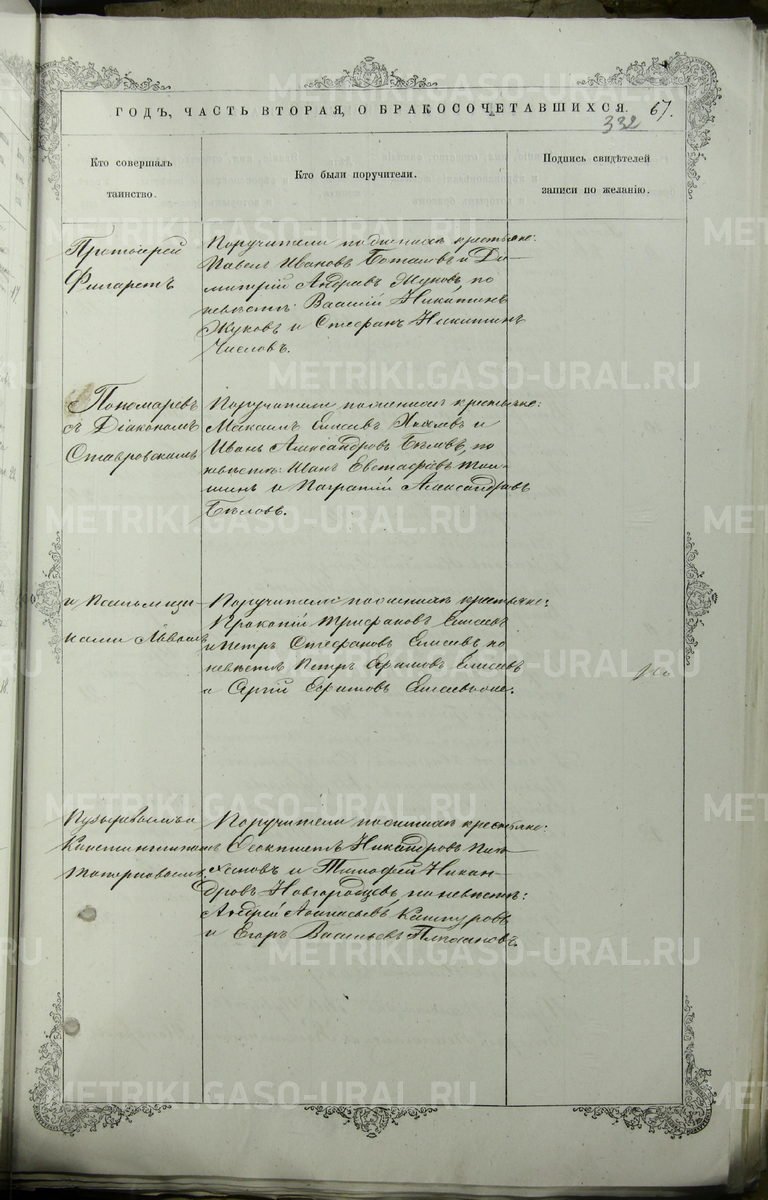 ГОДЪ, ЧАСТЬ ВТОРАЯ, О БРАКОСОЧЕТАВШИХСЯ.
67.
332
Кто совершалъ
таинство.
Кто были поручители.
Подпись свидѣтелей
записи по желанію.
Протоіерей
Филаретъ
Поручители по женихѣ крестьяне:
Павелъ Ивановъ и Ди-
митрій Андреевъ Жуковъ, по
невѣстѣ: Василій Никитинъ
Жуковъ и Стефанъ Никитинъ
Числовъ.
Пономаревъ
съ Діакономъ
Ставровскимъ
Поручители по женихѣ крестьяне:
Максимъ Елисеевъ и
Иванъ Александровъ Бѣловъ, по
невѣстѣ: Иванъ Евстафіевъ
и Александровъ
Бѣловъ.
и Псаломщи-
ками
Поручители по женихѣ крестьяне:
Прокопій Трифоновъ Елисеевъ
и Петръ Стефановъ Елисеевъ, по
невѣстѣ Петръ Ефимовъ Елисеевъ
и Сергій Ефимовъ
Константиномъ
Поручители по женихѣ крестьяне:
Никандровъ
и Тимофей Никан-
дровъ Новгородцевъ, по невѣстѣ:
Андрей Афанасьевъ
и Егоръ Васильевъ Плюснинъ.
METRIKI.GASO-URAL.RU